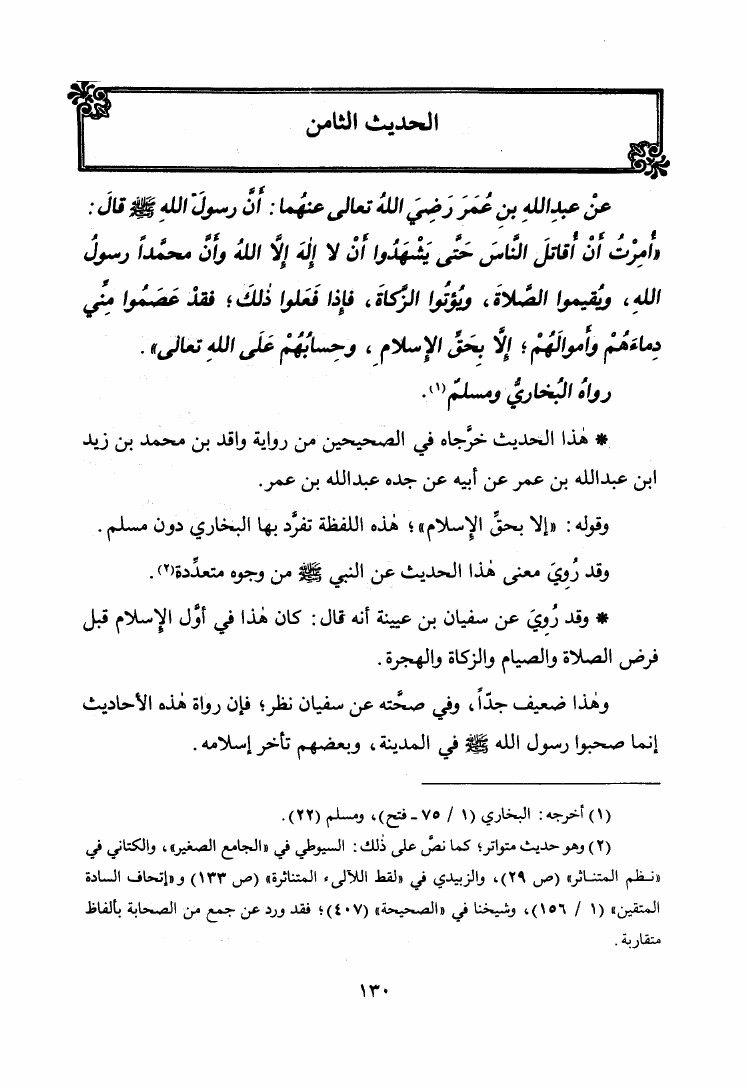 الحديث الثامن
عنْ عبدِاللهِ بنِ عُمَرَ رَضِيَ اللهُ تعالى عنهُما: أَنَّ رسولَ اللهِ ﷺ قالَ:
«أُمِرْتُ أَنْ أُقاتلَ النَّاسَ حَتَّى يَشْهَدُوا أَنْ لا إِلٰهَ إِلَّا اللهُ وأَنَّ محمَّداً رسولُ
اللهِ، ويُقيموا الصَّلاةَ، ويُؤتُوا الزَّكاةَ، فإِذا فَعَلوا ذٰلكَ؛ فقدْ عَصَمُوا مِنِّي
دِماءَهُمْ وأَموالَهُمْ؛ إِلَّا بِحَقِّ الإِسلامِ، وحِسابُهُمْ عَلَى اللهِ تعالى».
رواهُ البُخاريُّ ومسلمٌ(١).
* هٰذا الحديث خرَّجاه في الصحيحين من رواية واقد بن محمد بن زيد
ابن عبدالله بن عمر عن أبيه عن جده عبدالله بن عمر.
وقوله: «إلا بحقِّ الإِسلام»؛ هٰذه اللفظة تفرَّد بها البخاري دون مسلم.
وقد رُويَ معنى هٰذا الحديث عن النبي ﷺ من وجوه متعدِّدة(٢).
* وقد رُويَ عن سفيان بن عيينة أنه قال: كان هٰذا في أوَّل الإِسلام قبل
فرض الصلاة والصيام والزكاة والهجرة.
وهٰذا ضعيف جدّاً، وفي صحَّته عن سفيان نظر؛ فإن رواة هٰذه الأحاديث
إنما صحبوا رسول الله ﷺ في المدينة، وبعضهم تأخر إسلامه.
(١) أخرجه: البخاري (١ / ٧٥ ـ فتح)، ومسلم (٢٢).
(٢) وهو حديث متواتر؛ كما نصَّ على ذٰلك: السيوطي في «الجامع الصغير»، والكتاني في
«نظم المتناثر» (ص ٢٩)، والزبيدي في «لقط اللآلىء المتناثرة» (ص ١٣٣) و«إتحاف السادة
المتقين» (١ / ١٥٦)، وشيخنا في «الصحيحة» (٤٠٧)؛ فقد ورد عن جمع من الصحابة بألفاظ
متقاربة.
١٣٠